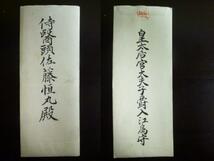 侍醫頭佐藤恒丸殿
皇太后宮大夫子爵入江為守